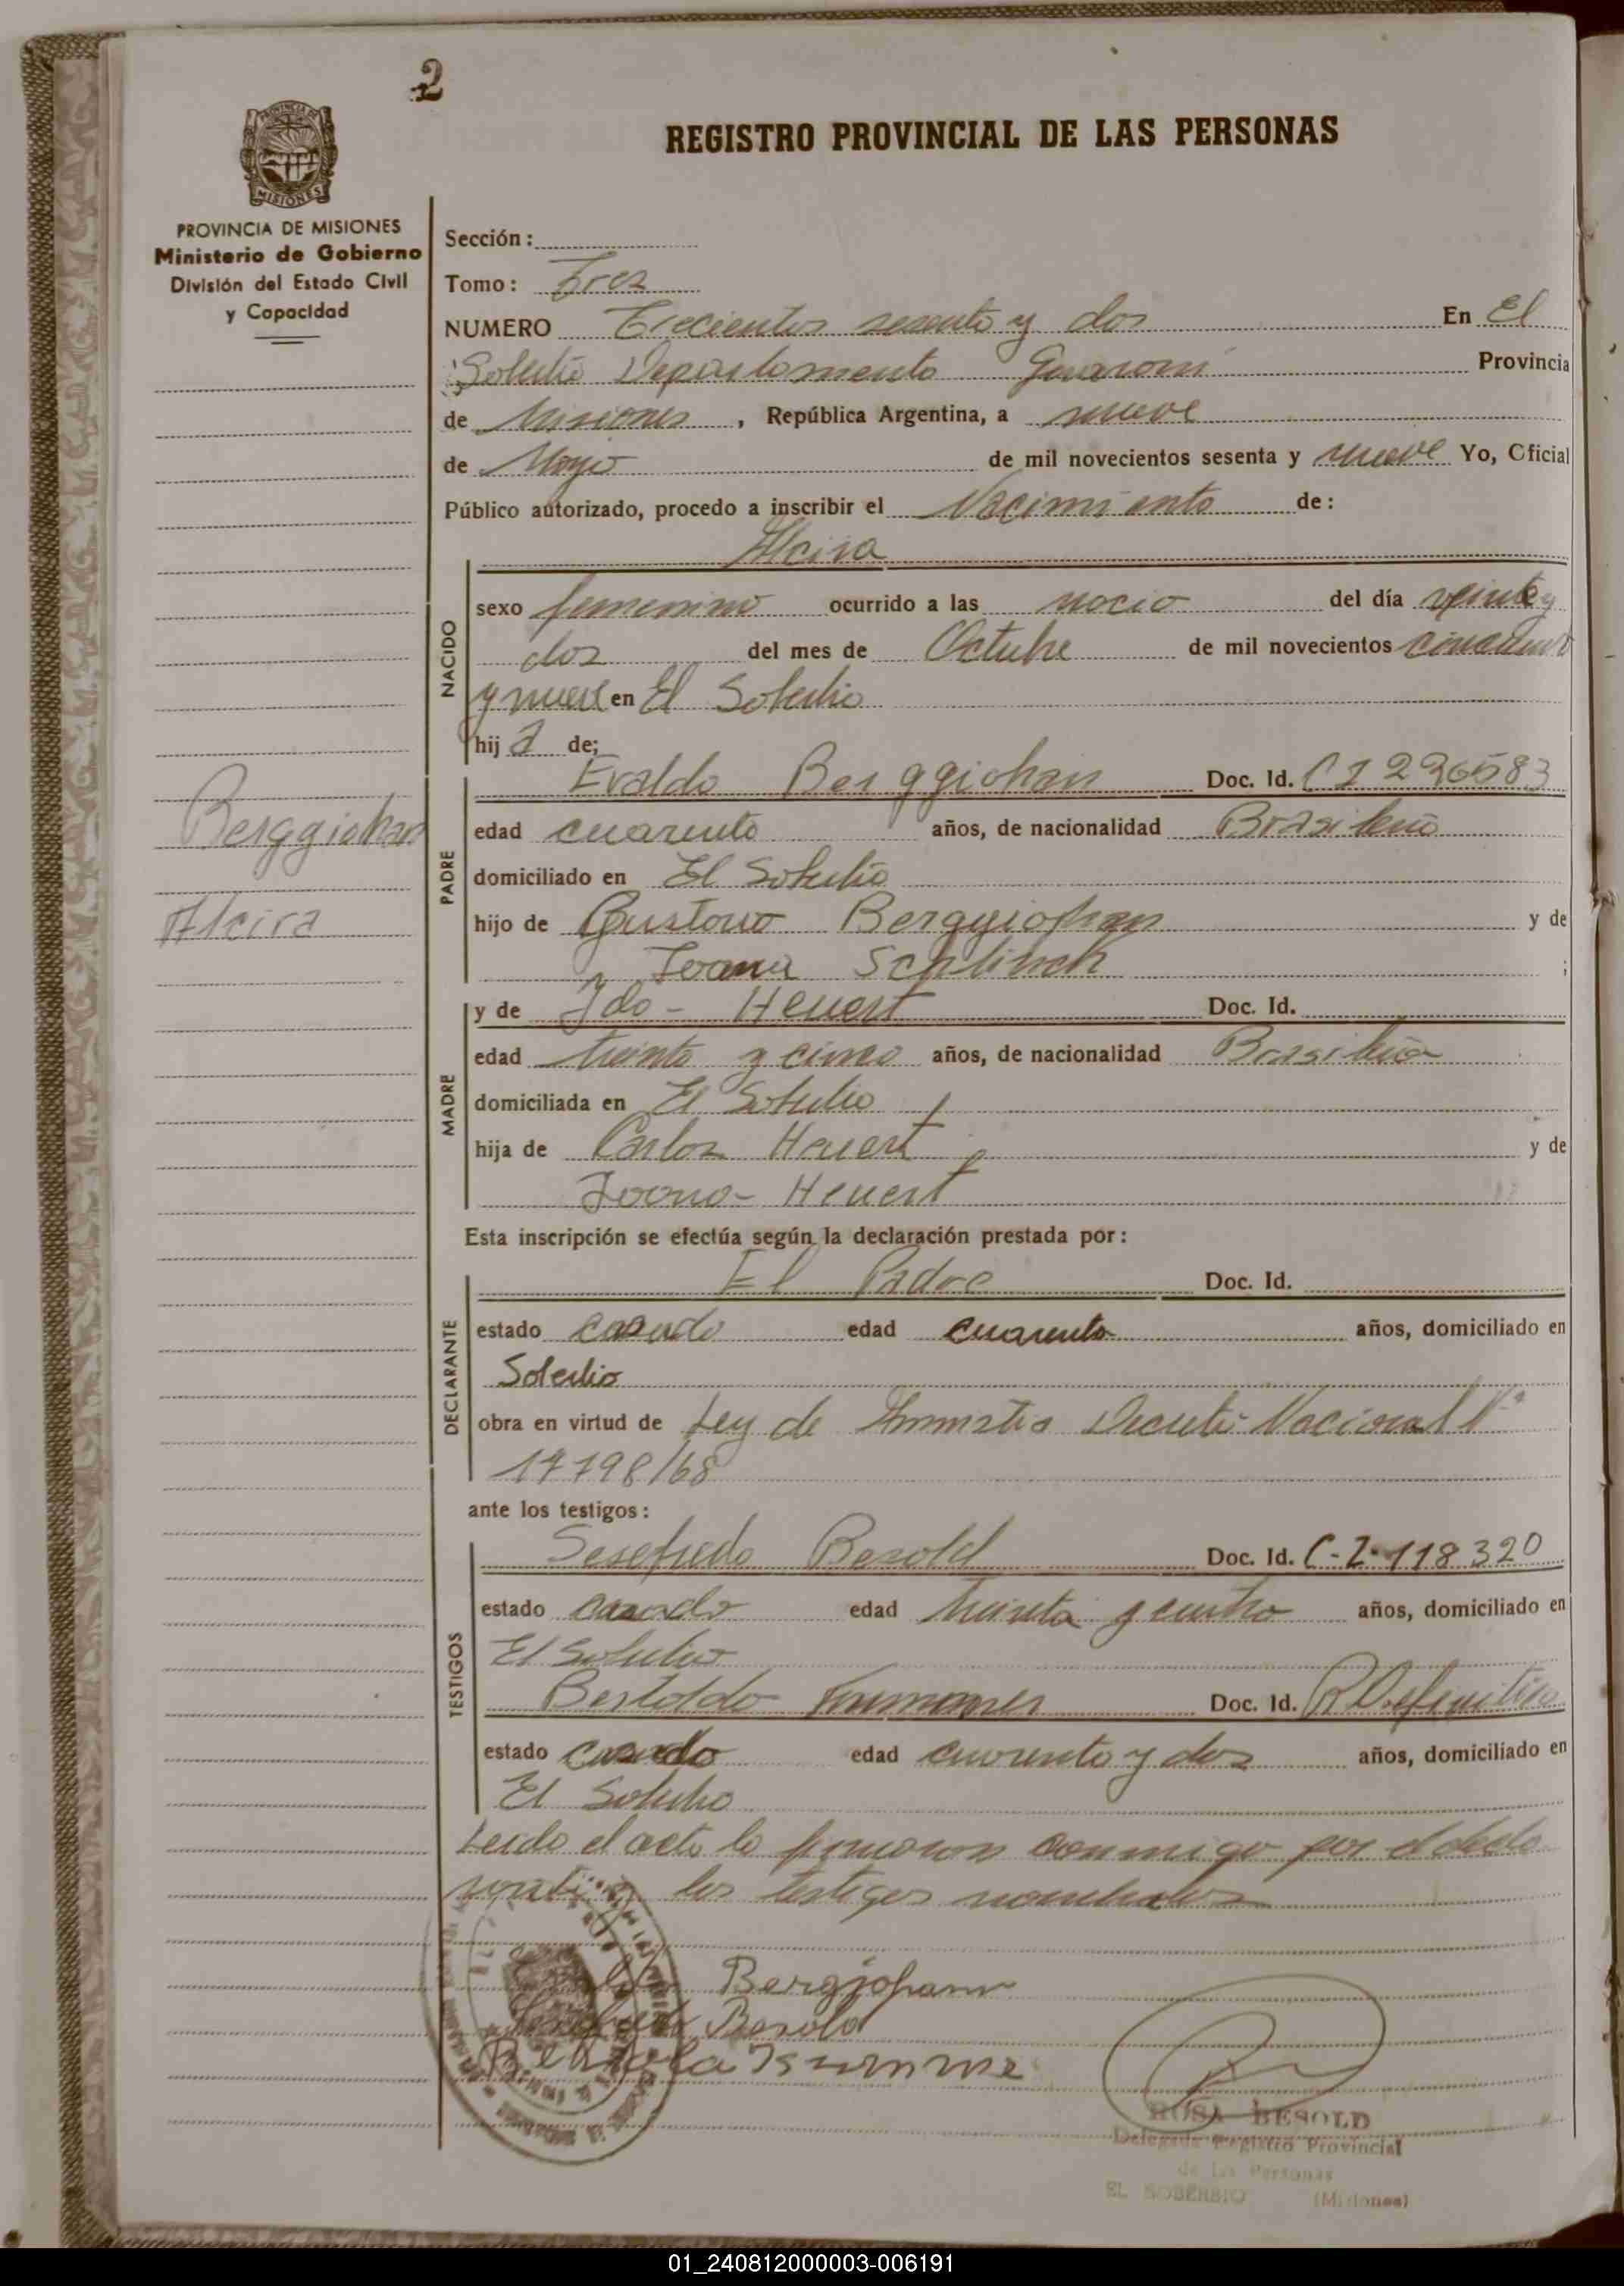 2
REGISTRO PROVINCIAL DE LAS PERSONAS
PROVINCIA DE MISIONES
MISIONES
PROVINCIA DE MISIONES
Ministerio de Gobierno
División del Estado Civil
y Capacidad
Sección:
Tomo: Tres
NUMERO Trecientos sesenta y dos En El
Soberbio Departamento Guaraní Provincia
de Misiones, República Argentina, a nueve
de Mayo de mil novecientos sesenta y nueve Yo, Oficial
Público autorizado, procedo a inscribir el Nacimiento de:
Alcira
NACIDO
sexo femenino ocurrido a las del día veinte y
dos del mes de Octubre de mil novecientos cincuenta
y nueve en El Soberbio
hija de;
Berggiohan
Alcira
PADRE
Evaldo Berggiohan Doc. Id. C I 236583
edad cuarenta años, de nacionalidad Brasileño
domiciliado en El Soberbio
hijo de Gustavo Berggiohan y de
Joana ;
MADRE
y de Ida - Heuert Doc. Id.
edad treinta y cinco años, de nacionalidad Brasileña
domiciliada en El Soberbio
hija de Carlos Heuert y de
Joana - Heuert
Esta inscripción se efectúa según la declaración prestada por:
DECLARANTE
El Padre Doc. Id.
estado casado edad cuarenta años, domiciliado en
Soberbio
obra en virtud de Ley de Amnistia Decreto Nacional Nº
17798/68
ante los testigos:
TESTIGOS
Sesefredo Besold Doc. Id. C-I-118320
estado casado edad treinta y cuatro años, domiciliado en
El Soberbio
Bertoldo Doc. Id. R Definitivo
estado casado edad cuarenta y dos años, domiciliado en
El Soberbio
Leido el acta la firmaron conmigo por el
los testigos nombrados
Bergjohann
Besold
ROSA BESOLD
Delegada Registro Provincial
de las Personas
EL SOBERBIO (Misiones)
01_240812000003-006191